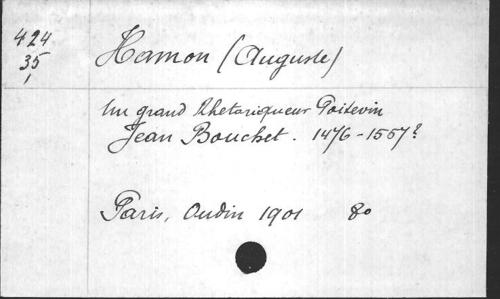 424
35
1
Hamon (Auguste)
Un grand Rhetoriqueur Poitevin
Jean Bouchet. 1476-1557?
Paris, Oudin 1901 8o